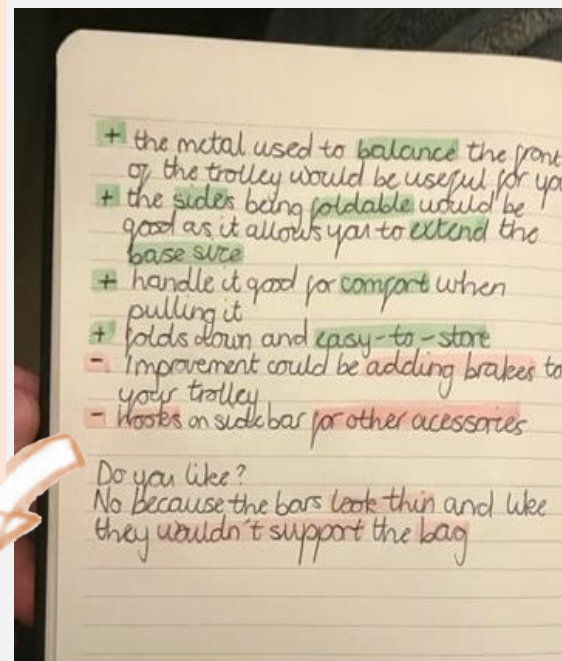 + the metal used to balance the front
of the trolley would be useful for you
+ the sides being foldable would be
good as it allows you to extend the
base size
+ handle it good for comfort when
pulling it
+ folds down and easy-to-store
- Improvement could be adding brakes to
your trolley
- hooks on side bar for other acessories
Do you like?
No because the bars look thin and like
they wouldn't support the bag